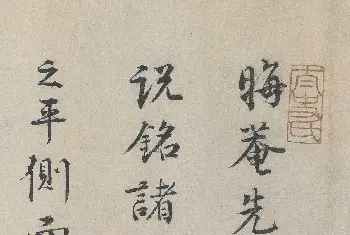 晦菴先
说銘諸
之平側而